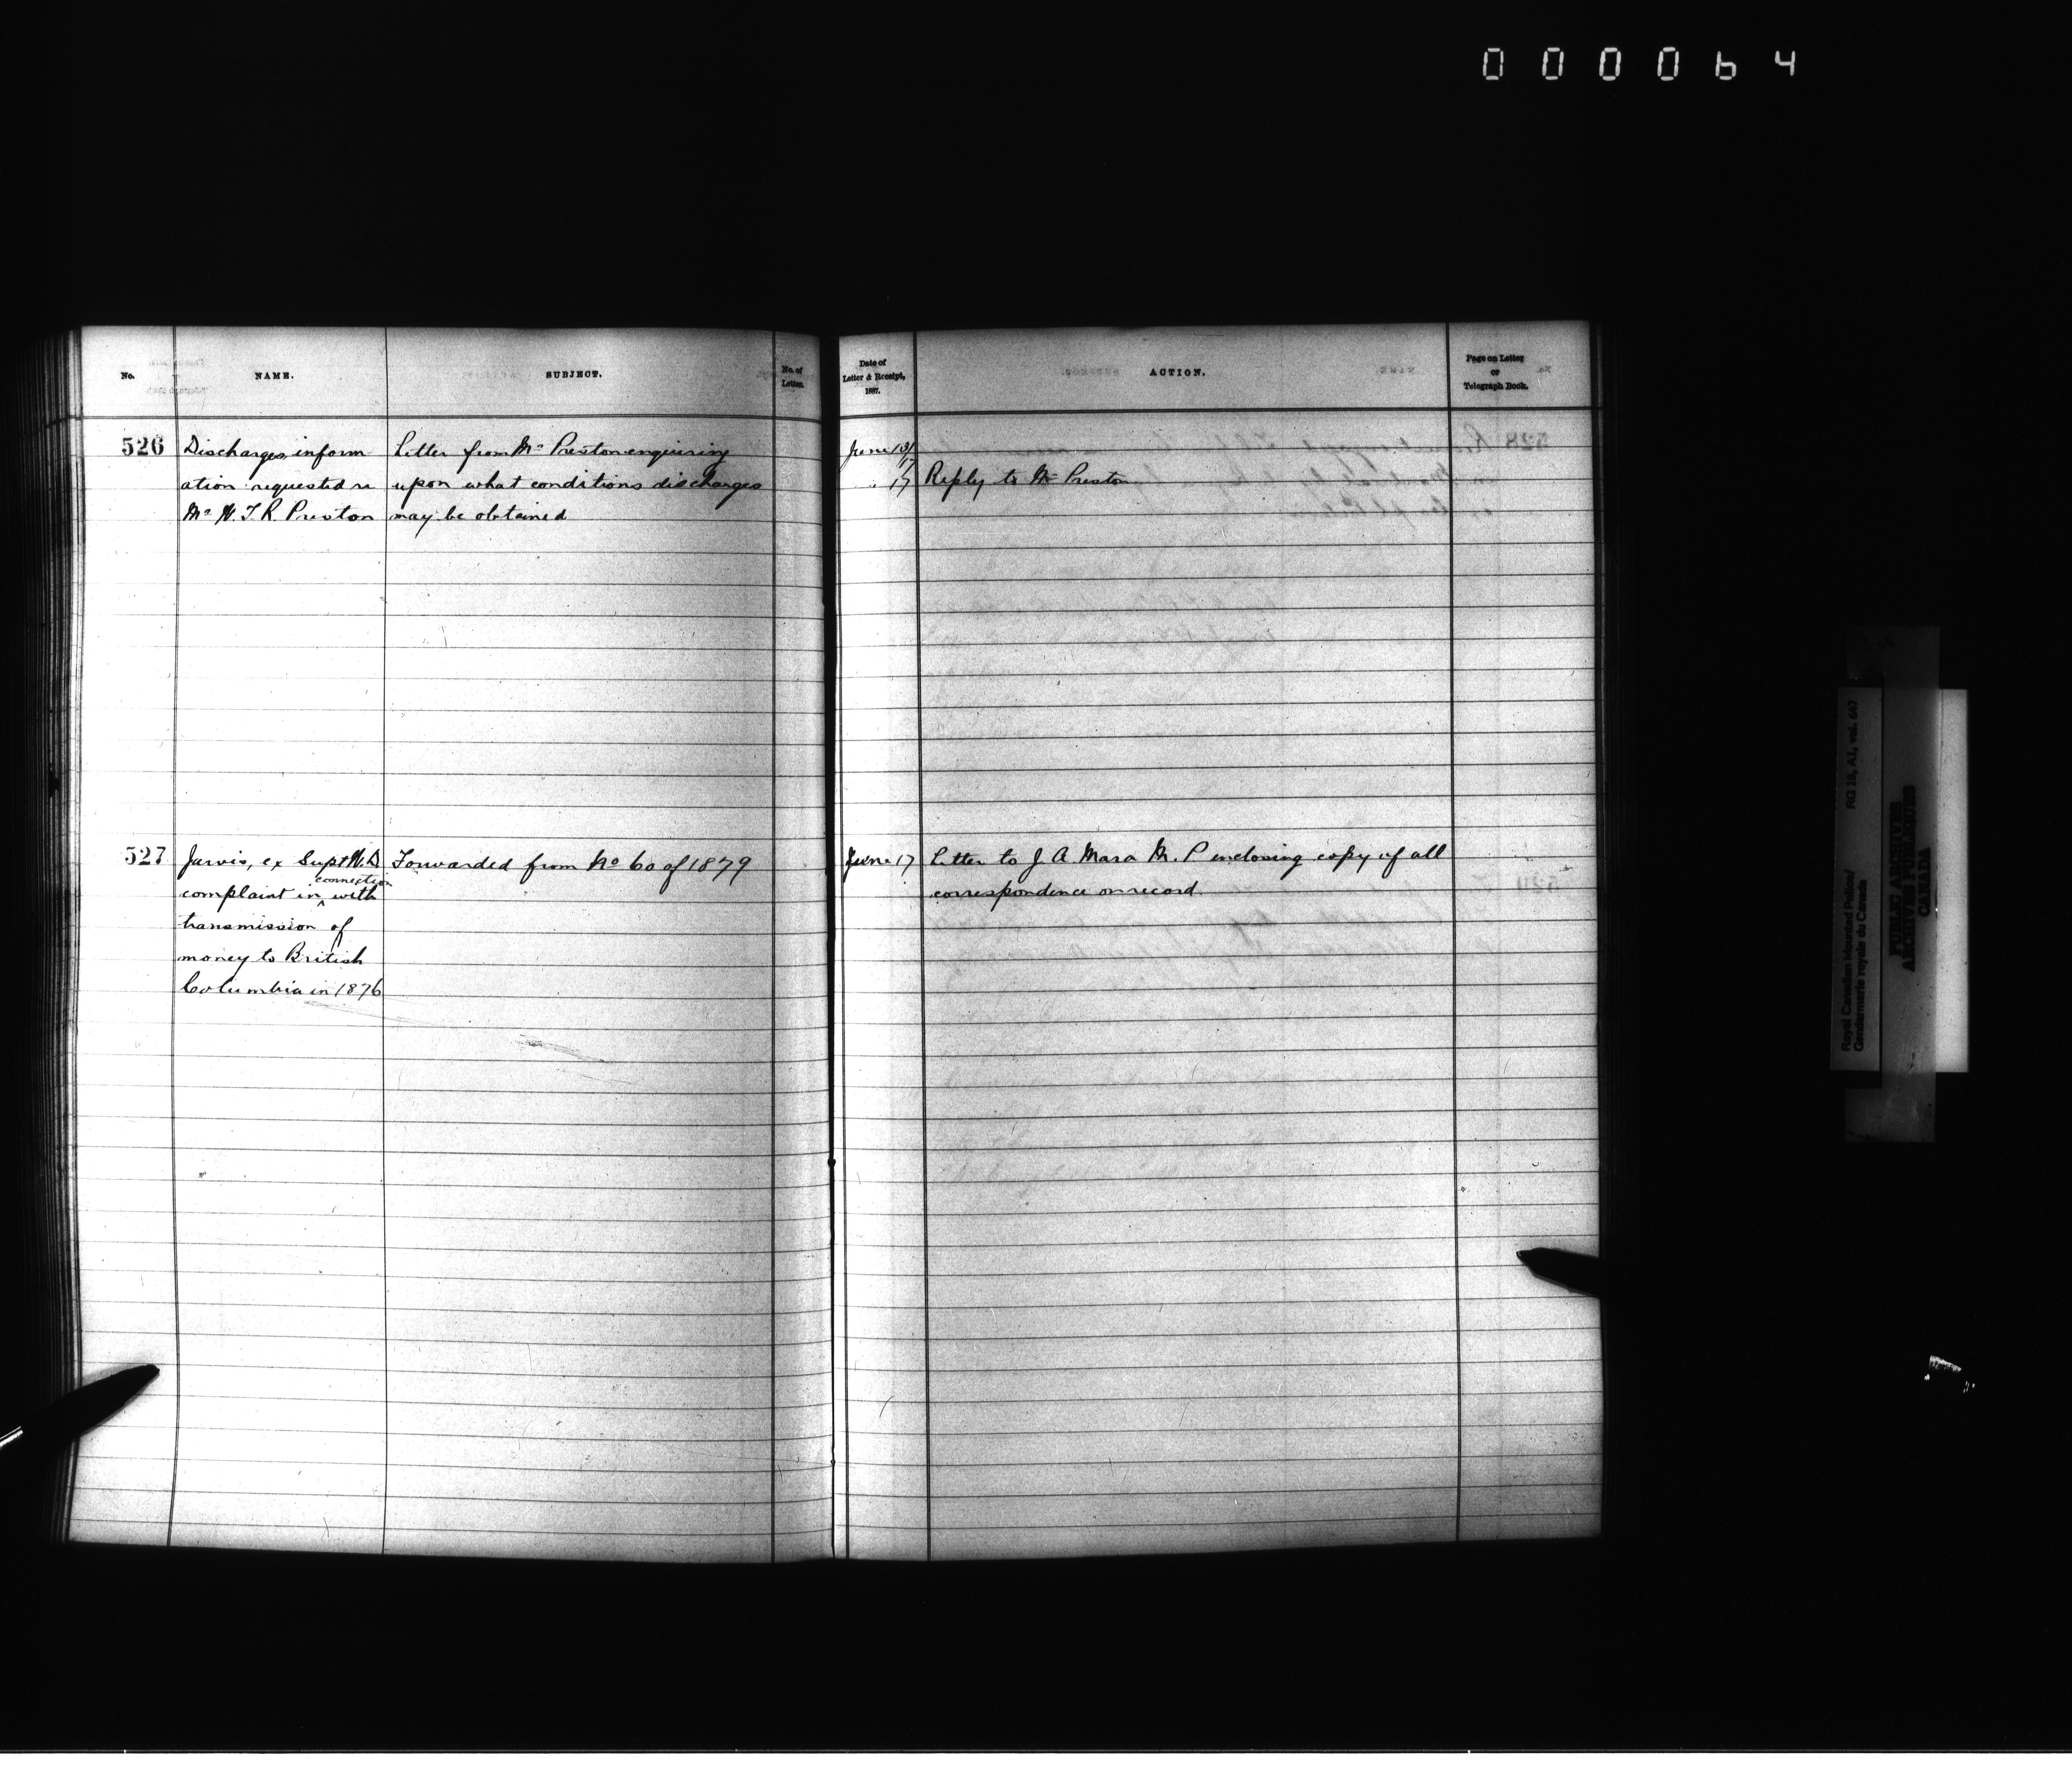 000064
No.
NAME.
SUBJECT.
No. of
Letter.
Date of
Letter & Receipt,
1887.
ACTION.
Page on Letter
or
Telegraph Book.
526
Discharges, inform-
ation requested re
Mr W. T. R. Preston
Letter from Mr Preston enquiring
upon what conditions discharges
may be obtained
June 13/
17
" 17
Reply to Mr Preston
527
Jarvis, ex Supt W. D
connection
complaint in ^ with
transmission of
money to British
Columbia in 1876
Forwarded from No 60 of 1879
June 17
Letter to J. A. Mara M. P enclosing copy of all
correspondence on record.
Royal Canadian Mounted Police/
Gendarmerie royale du Canada
RG 18, A1, vol. 647
PUBLIC ARCHIVES
ARCHIVES PUBLIQUES
CANADA